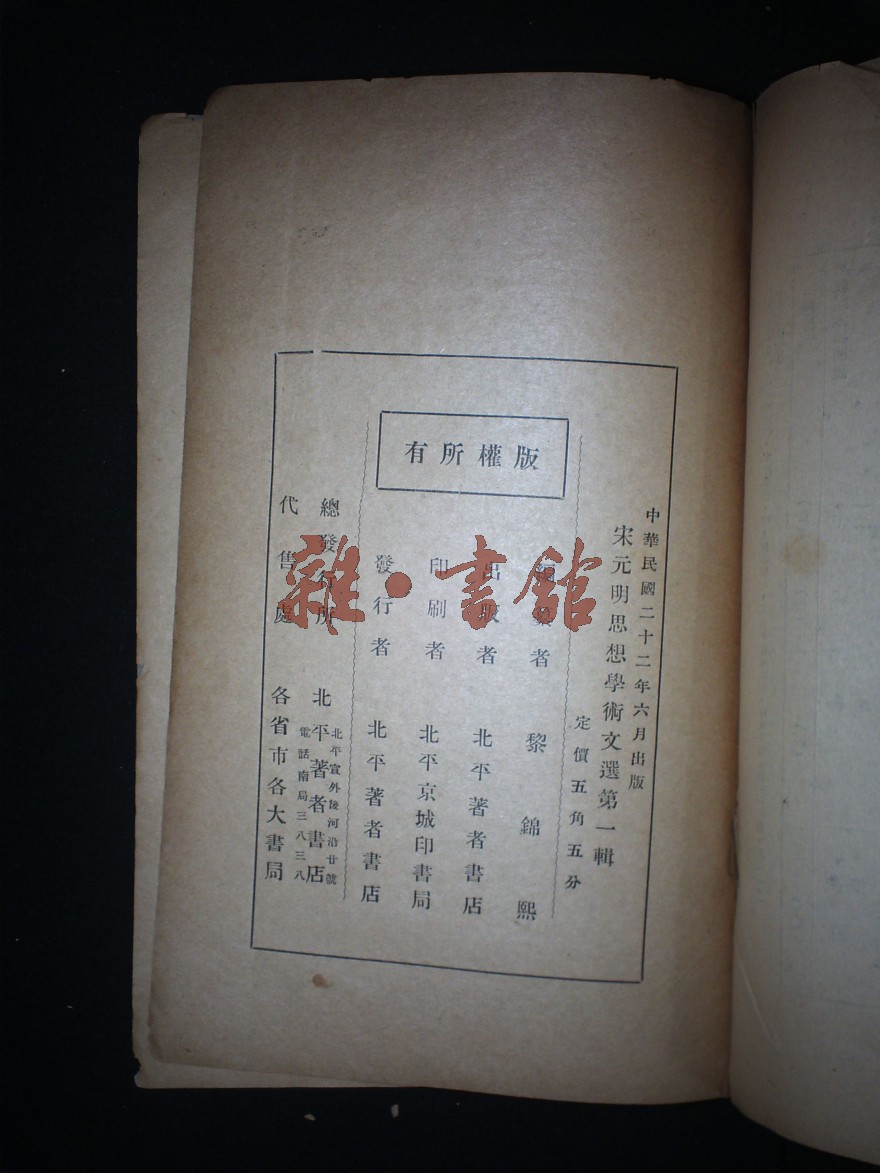 中華民國二十二年六月出版
宋元明思想學術文選第一輯
定價五角五分
版權所有
者 黎錦熙
出版者 北平著者書店
印刷者 北平京城印書局
發行者 北平著者書店
總發行所 北平著者書店
北平宣外後河沿廿號
電話南局三八三八
代售處 各省市各大書局
雜·書館